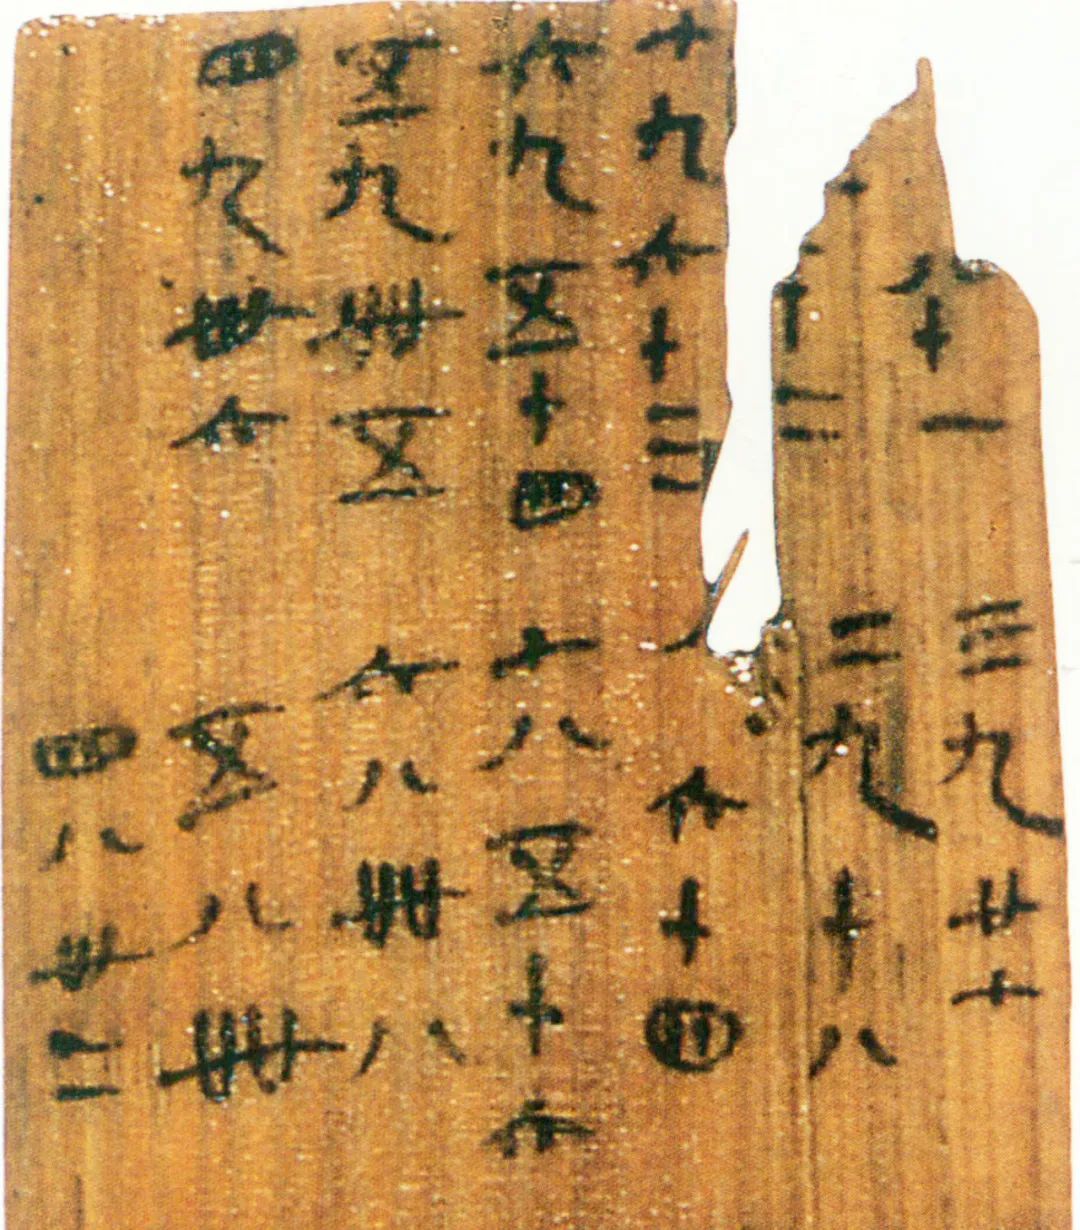 八十一
十二
七九六十三
六九五十四
五九卌五
四九卅六
三九廿七
二九十八
六十四
七八五十六
六八卌八
五八卌
四八卅二